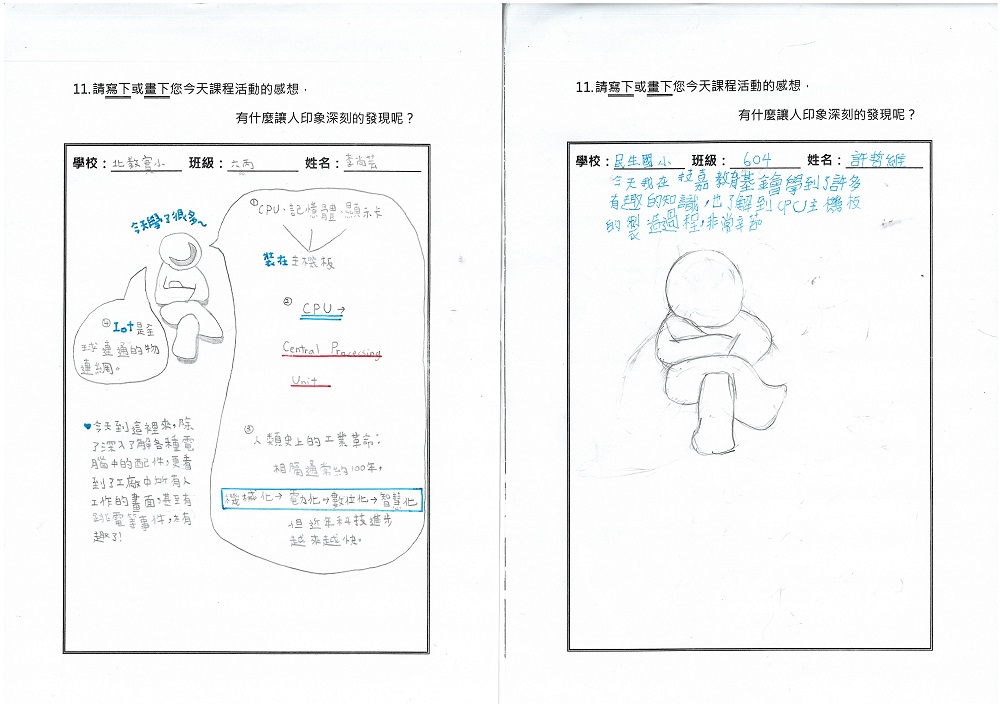 11.請寫下或畫下您今天課程活動的感想，
有什麼讓人印象深刻的發現呢？
學校：北教實小 班級：六丙 姓名：李尚芸
今天學了很多~
①CPU、記憶體、顯示卡
裝在主機板
② CPU→
Central Processing
Unit
③人類史上的工業革命：
相隔通常約100年，
機械化→電力化→數位化→智慧化
但近年科技進步
越來越快。
④IoT是全
球連通的物
連網。
♥今天到這裡來，除
了深入了解各種電
腦中的配件，更看
到了工廠中所有人
工作的畫面，甚至有
跳電等事件，太有
趣了!
11.請寫下或畫下您今天課程活動的感想，
有什麼讓人印象深刻的發現呢？
學校：民生國小 班級：604 姓名：許哲維
今天我在技嘉教育基金會學到了許多
有趣的知識，也了解到CPU主機板
的製造過程，非常